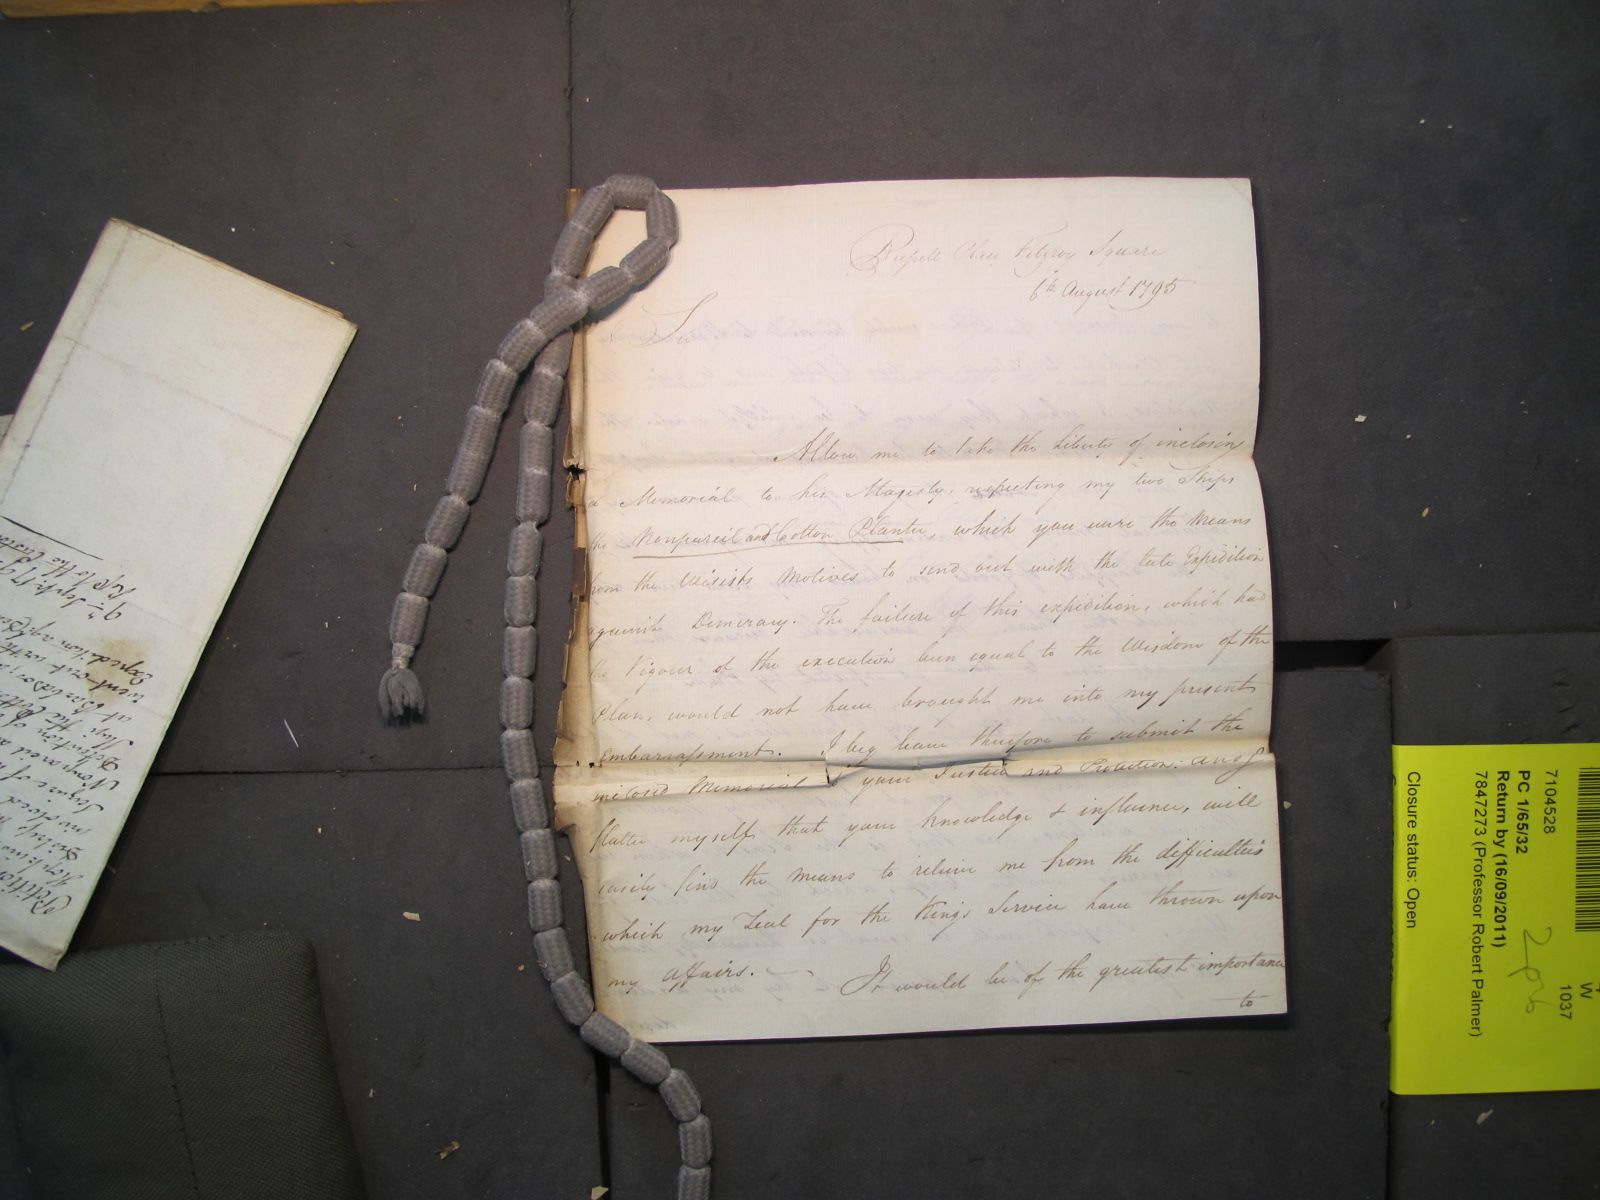 Russell Place Fitzroy Square
6th August 1795
Sir
Allow me to take the Liberty of inclosing
a Memorial to his Majesty, respecting my two Ships
the Nonpareil and Cotton Planter, which you were the Means
from the Wisests Motives to send out with the late Expedition
against Demerary. The failure of this expedition, which had
the Vigour of the execution been equal to the Wisdom of the
Plan, would not have brought me into my present
Embarrassment. I beg leave therefore to submit the
inclosed Memorial your Justice and Protection. and
flatter myself that your knowledge & influence, will
easily find the Means to relieve me from the difficulties
which my Zeal for the Kings Service have thrown upon
my affairs. It would be of the greatest importance
to
9th Septr. 179
Expedition agt
went out with
at Barbados
Ship the Cotton
Detention of
Nonpareil a
Petition
7104528
PC 1/65/32
Return by (16/09/2011)
7847273 (Professor Robert Palmer)
Closure status: Open
W
1037